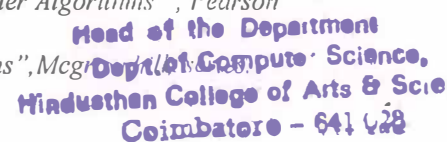 er Algorithms" , Pearson
Head of the Department
ns",Mcgr
Dept. of Compute Science,
Hindusthan College of Arts & Scie
Coimbatore - 641 028